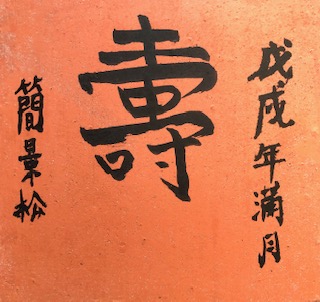 戊戌年滿月
壽
簡景松